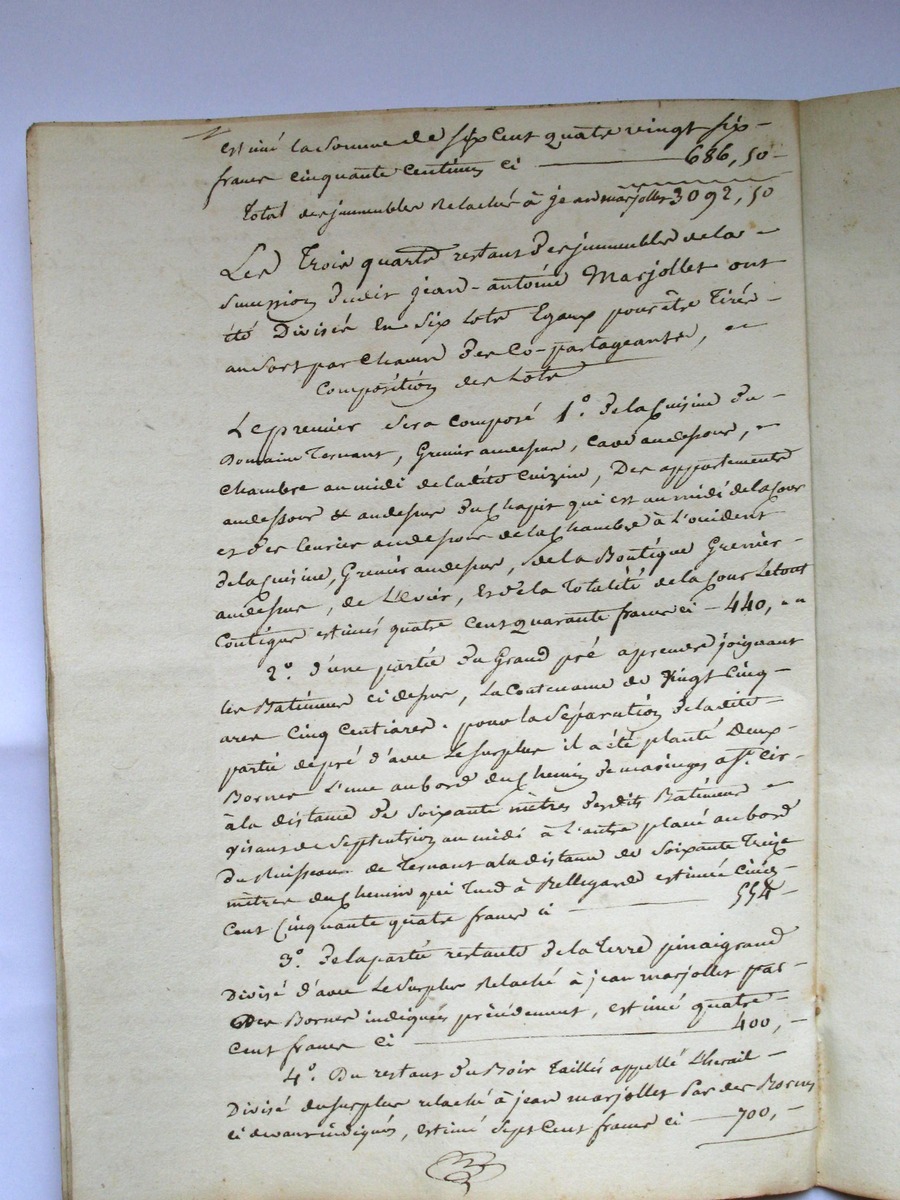 estimé la somme de six cent quatre vingt six
francs cinquante centimes ci — 686,50
Total des immeubles relaché à jean marjollet 3092,50
Les trois quarts restant des immeubles de la
succession dudit jean-antoine Marjollet ont
été Divisé en six lots Egaux pour être tirés
au sort par chacun des Co-partageants,
Composition des lots
Le premier sera composé 1º. de la Cuisine du
Domaine Ternant, Grenier audessus, cave audessous,
chambre au midi de ladite Cuizine, Des appartements
audessous & audessus du chapit qui est au midi de la Cour
et des Ecuries audessous de la chambre à l'occident
de la cuisine, Grenier audessus, de la Boutique Grenier
audessus, de L'Evier, Et de la Totalité de la Cour Letout
Contigue estimés quatre cent quarante francs ci — 440,
2º. d'une partie du Grand pré aprendre joignant
les Batiments ci dessus, la Contenance de Vingt Cinq
ares Cinq Centiares. pour la Séparation de ladite
partie de pré d'avec Le surplus il a été planté Deux
Bornes L'une au bord du chemin de maringes a St. Cir
à la distance de soixante mètres desdits Batiments
visant de Septentrion au midi à L'autre placé au bord
du Ruisseau de Ternant a la distance de Soixante Treize
mètres du chemin qui Tend à Bellegarde estimée Cinq
Cent Cinquante quatre francs ci — 554
3º. de la partie restante de la Terre pinaigrand
Divisé d'avec Le surplus Relaché à jean marjollet par
des Bornes indiquées précédement, estimé quatre
cent francs ci — 400,
4º. Du restant du Bois Taillis appellé
Divisé du surplus relaché à jean marjollet Par des Bornes
ci devant indiqués, estimé sept cent francs ci — 700,